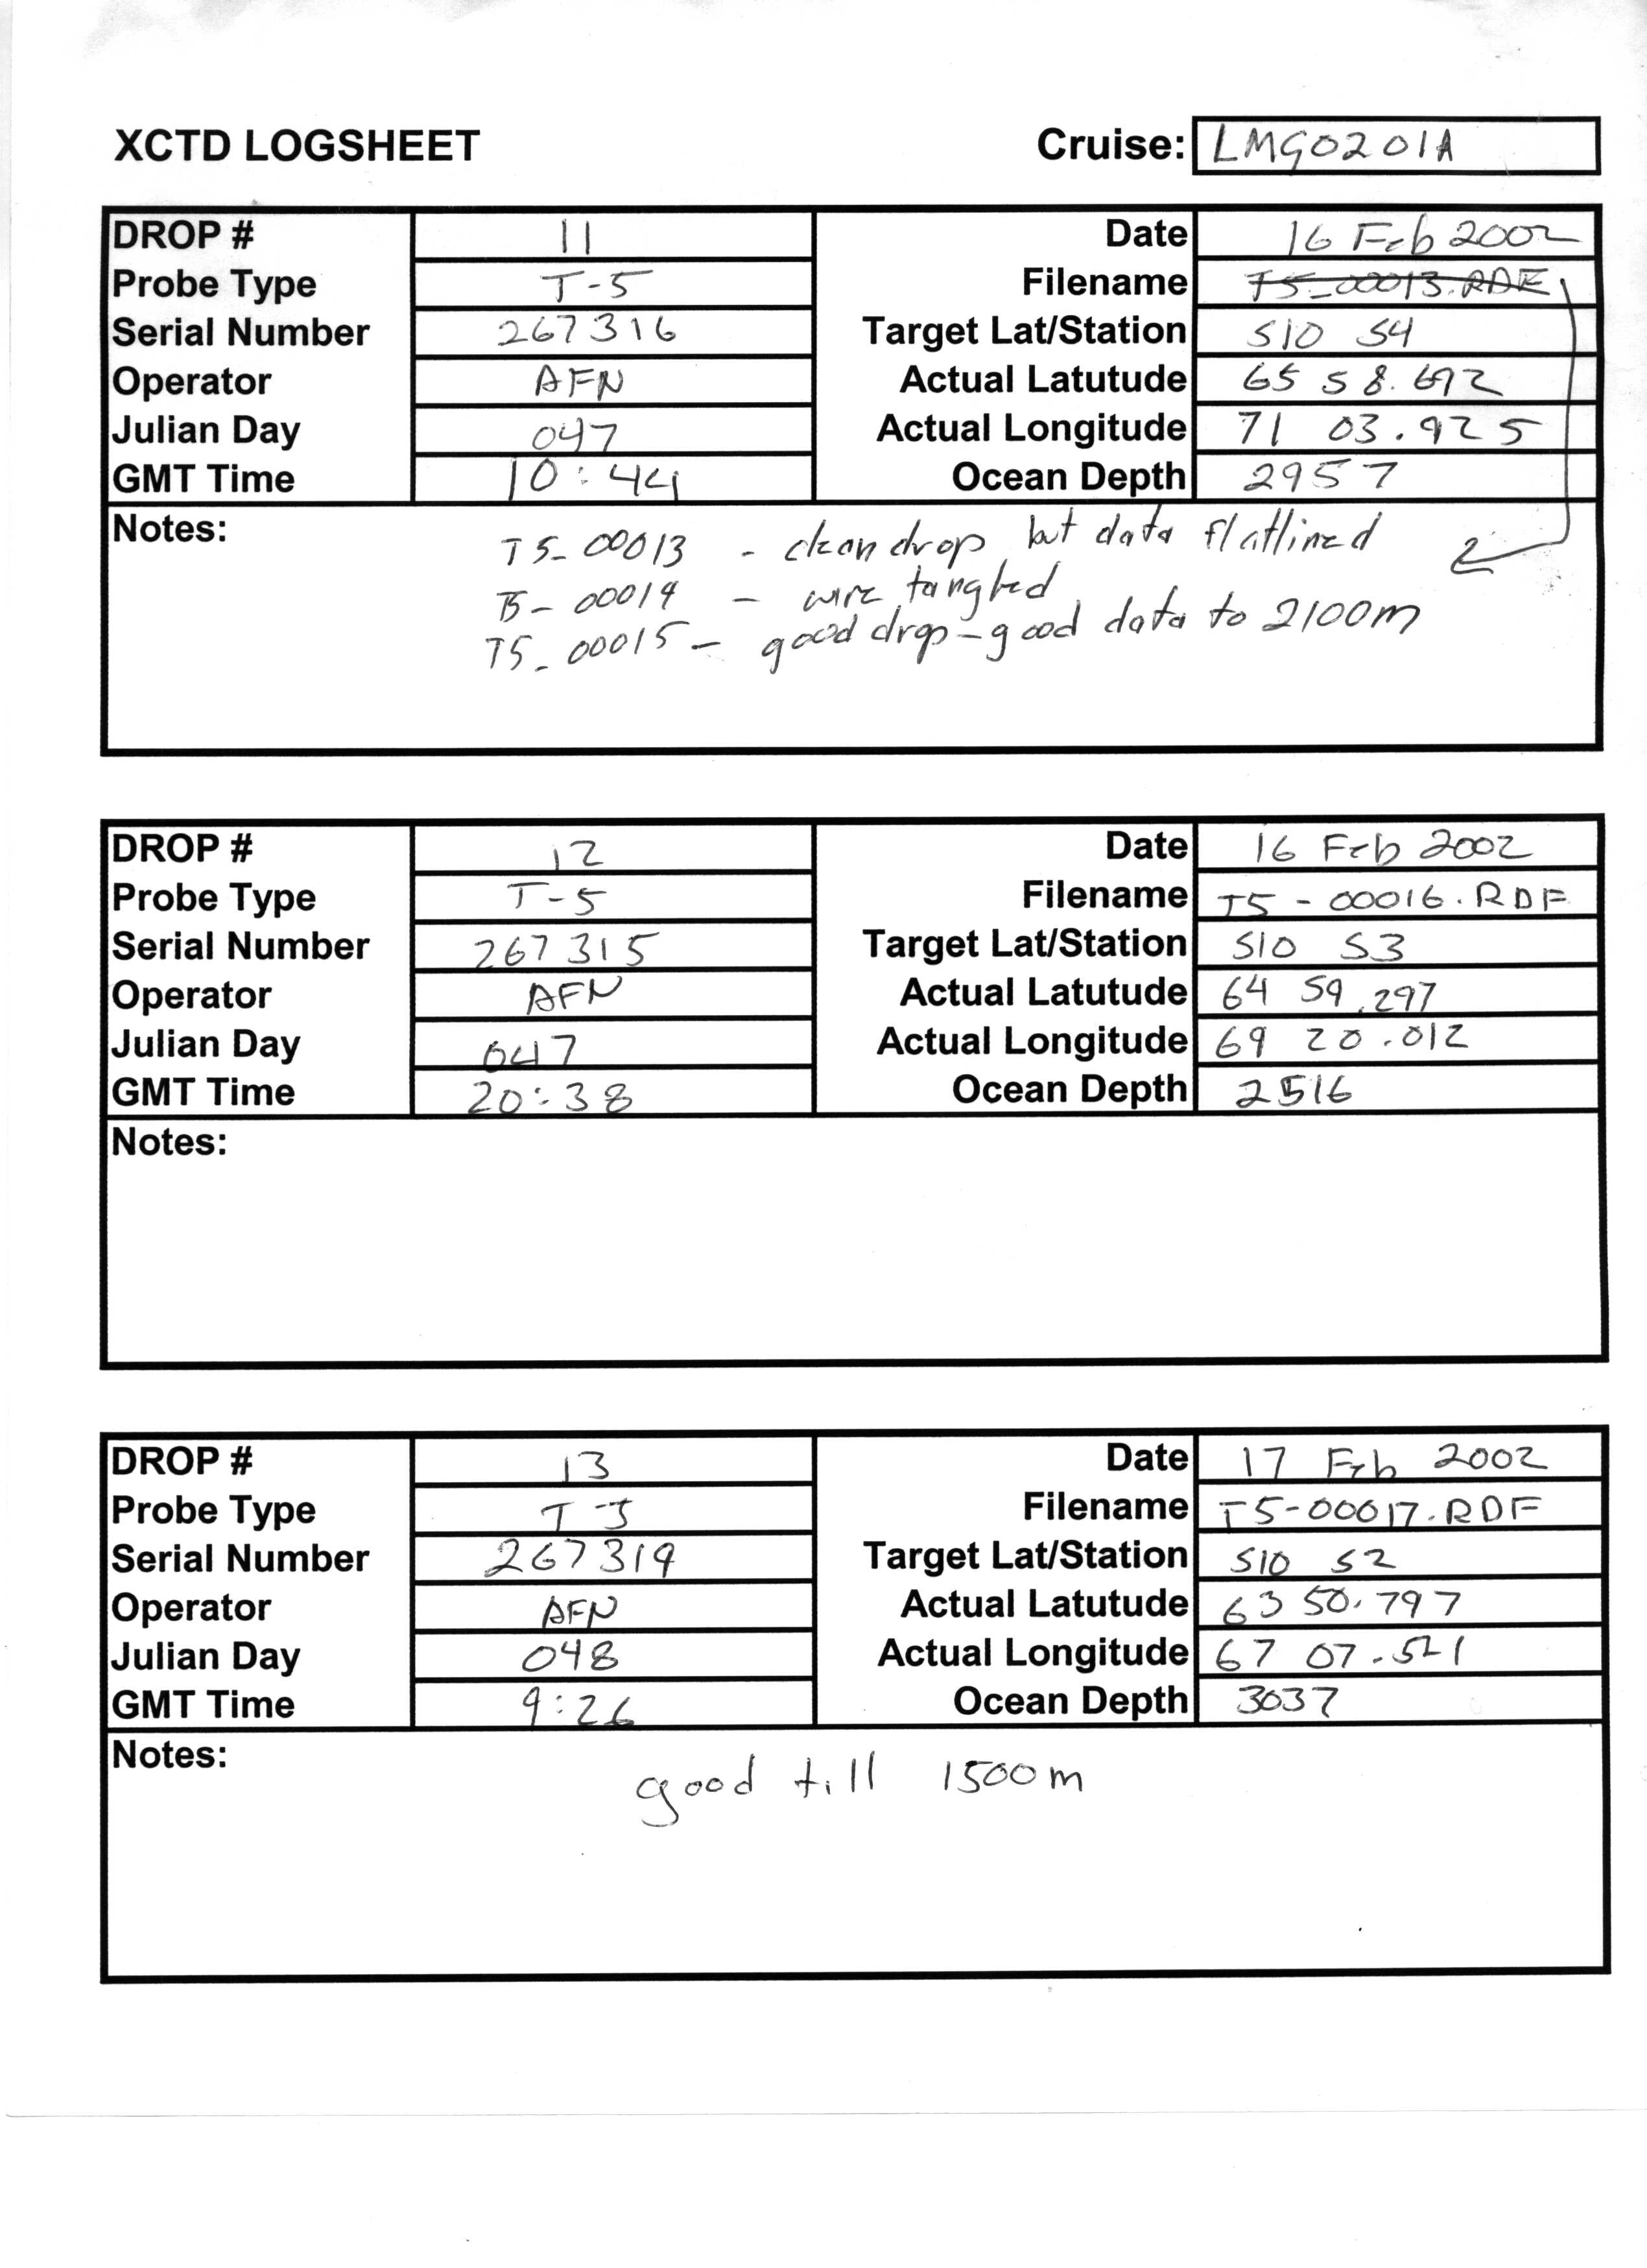 XCTD LOGSHEET Cruise: LMG0201A
DROP # 11 Date 16 Feb 2002
Probe Type T-5 Filename T5_00013.RDF
Serial Number 267316 Target Lat/Station S10 S4
Operator AFN Actual Latutude 65 58.692
Julian Day 047 Actual Longitude 71 03.925
GMT Time 10:44 Ocean Depth 2957
Notes: T5_00013 - clean drop, but data flatlined
T5-00014 - wire tangled
T5_00015 - good drop - good data to 2100m
DROP # 12 Date 16 Feb 2002
Probe Type T-5 Filename T5-00016.RDF
Serial Number 267315 Target Lat/Station S10 S3
Operator AFN Actual Latutude 64 59.297
Julian Day 047 Actual Longitude 69 20.012
GMT Time 20:38 Ocean Depth 2516
Notes:
DROP # 13 Date 17 Feb 2002
Probe Type T-5 Filename T5-00017.RDF
Serial Number 267319 Target Lat/Station S10 S2
Operator AFN Actual Latutude 63 50.797
Julian Day 048 Actual Longitude 67 07.521
GMT Time 9:26 Ocean Depth 3037
Notes: good till 1500m